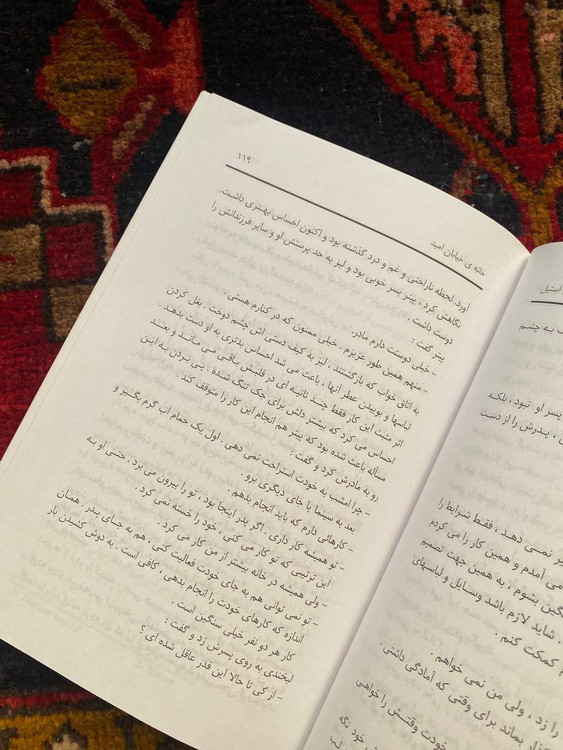 خانه ی خیابان امید
۱۱۹
آورد. لحظه ناراحتی و غم و درد گذشته بود و اکنون احساس بهتری داشت.
نگاهش کرد ، پیتر پسر خوبی بود و لیز به حد پرستش او و سایر فرزندانش را
دوست داشت .
پیتر گفت :
- خیلی دوستت دارم مادر.
- منهم همین طور عزیزم . خیلی ممنون که در کنارم هستی .
به اتاق خواب که بازگشتند ، لیز به کیف دستی اش چشم دوخت . بغل کردن
لباسها و بوییدن عطر آنها ، باعث می شد احساس بدتری به او دست بدهد .
اثر مثبت این کار فقط چند ثانیه ای در قلبش باقی می ماند و بعد
احساس می کرد که بیشتر دلش برای جک تنگ شده . پی بردن به این
مسأله باعث شده بود که پیتر هم انجام این کار را متوقف کند.
رو به مادرش کرد و گفت :
- چرا امشب به خودت استراحت نمی دهی . اول یک حمام آب گرم بگیر و
بعد به سینما یا جای دیگری برو .
- کارهائی دارم که باید انجام بدهم .
- تو همیشه کار داری . اگر پدر اینجا بود ، تو را بیرون می برد . حتی او به
این ترتیبی که تو کار می کنی ، خود را خسته نمی کرد .
- ولی همیشه در خانه بیشتر از من کار می کرد .
- تو نمی توانی هم به جای خودت فعالیت کنی ، هم به جای پدر . همان
اندازه که کارهای خودت را انجام بدهی ، کافی است . به دوش کشیدن بار
کار هر دو نفر خیلی سنگین است .
لبخندی به روی پسرش زد و گفت :
- از کی تا حالا این قدر عاقل شده ای ؟
استیل
به چشم
پسر او نبود ، بلکه
، پدرش را از دست
نمی دهد ، فقط شرایط را
می آمدم و همین کار را می کردم
بشوم ، به همین جهت تصمیم
. شاید لازم باشد وسایل و لباسهای
کمکت کنم .
را زد ، ولی من نمی خواهم .
بماند برای وقتی که آمادگی داشتی .
خودت وقتش را خواهی
خود نگه